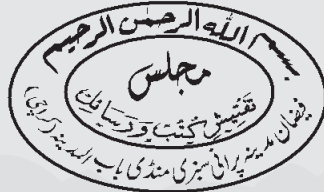 بسم اللہ الرحمٰن الرحیم
مجلس
تفتیشِ کتب و رسائل
فیضان مدینہ پرانی سبزی منڈی باب المدینہ (کراچی)